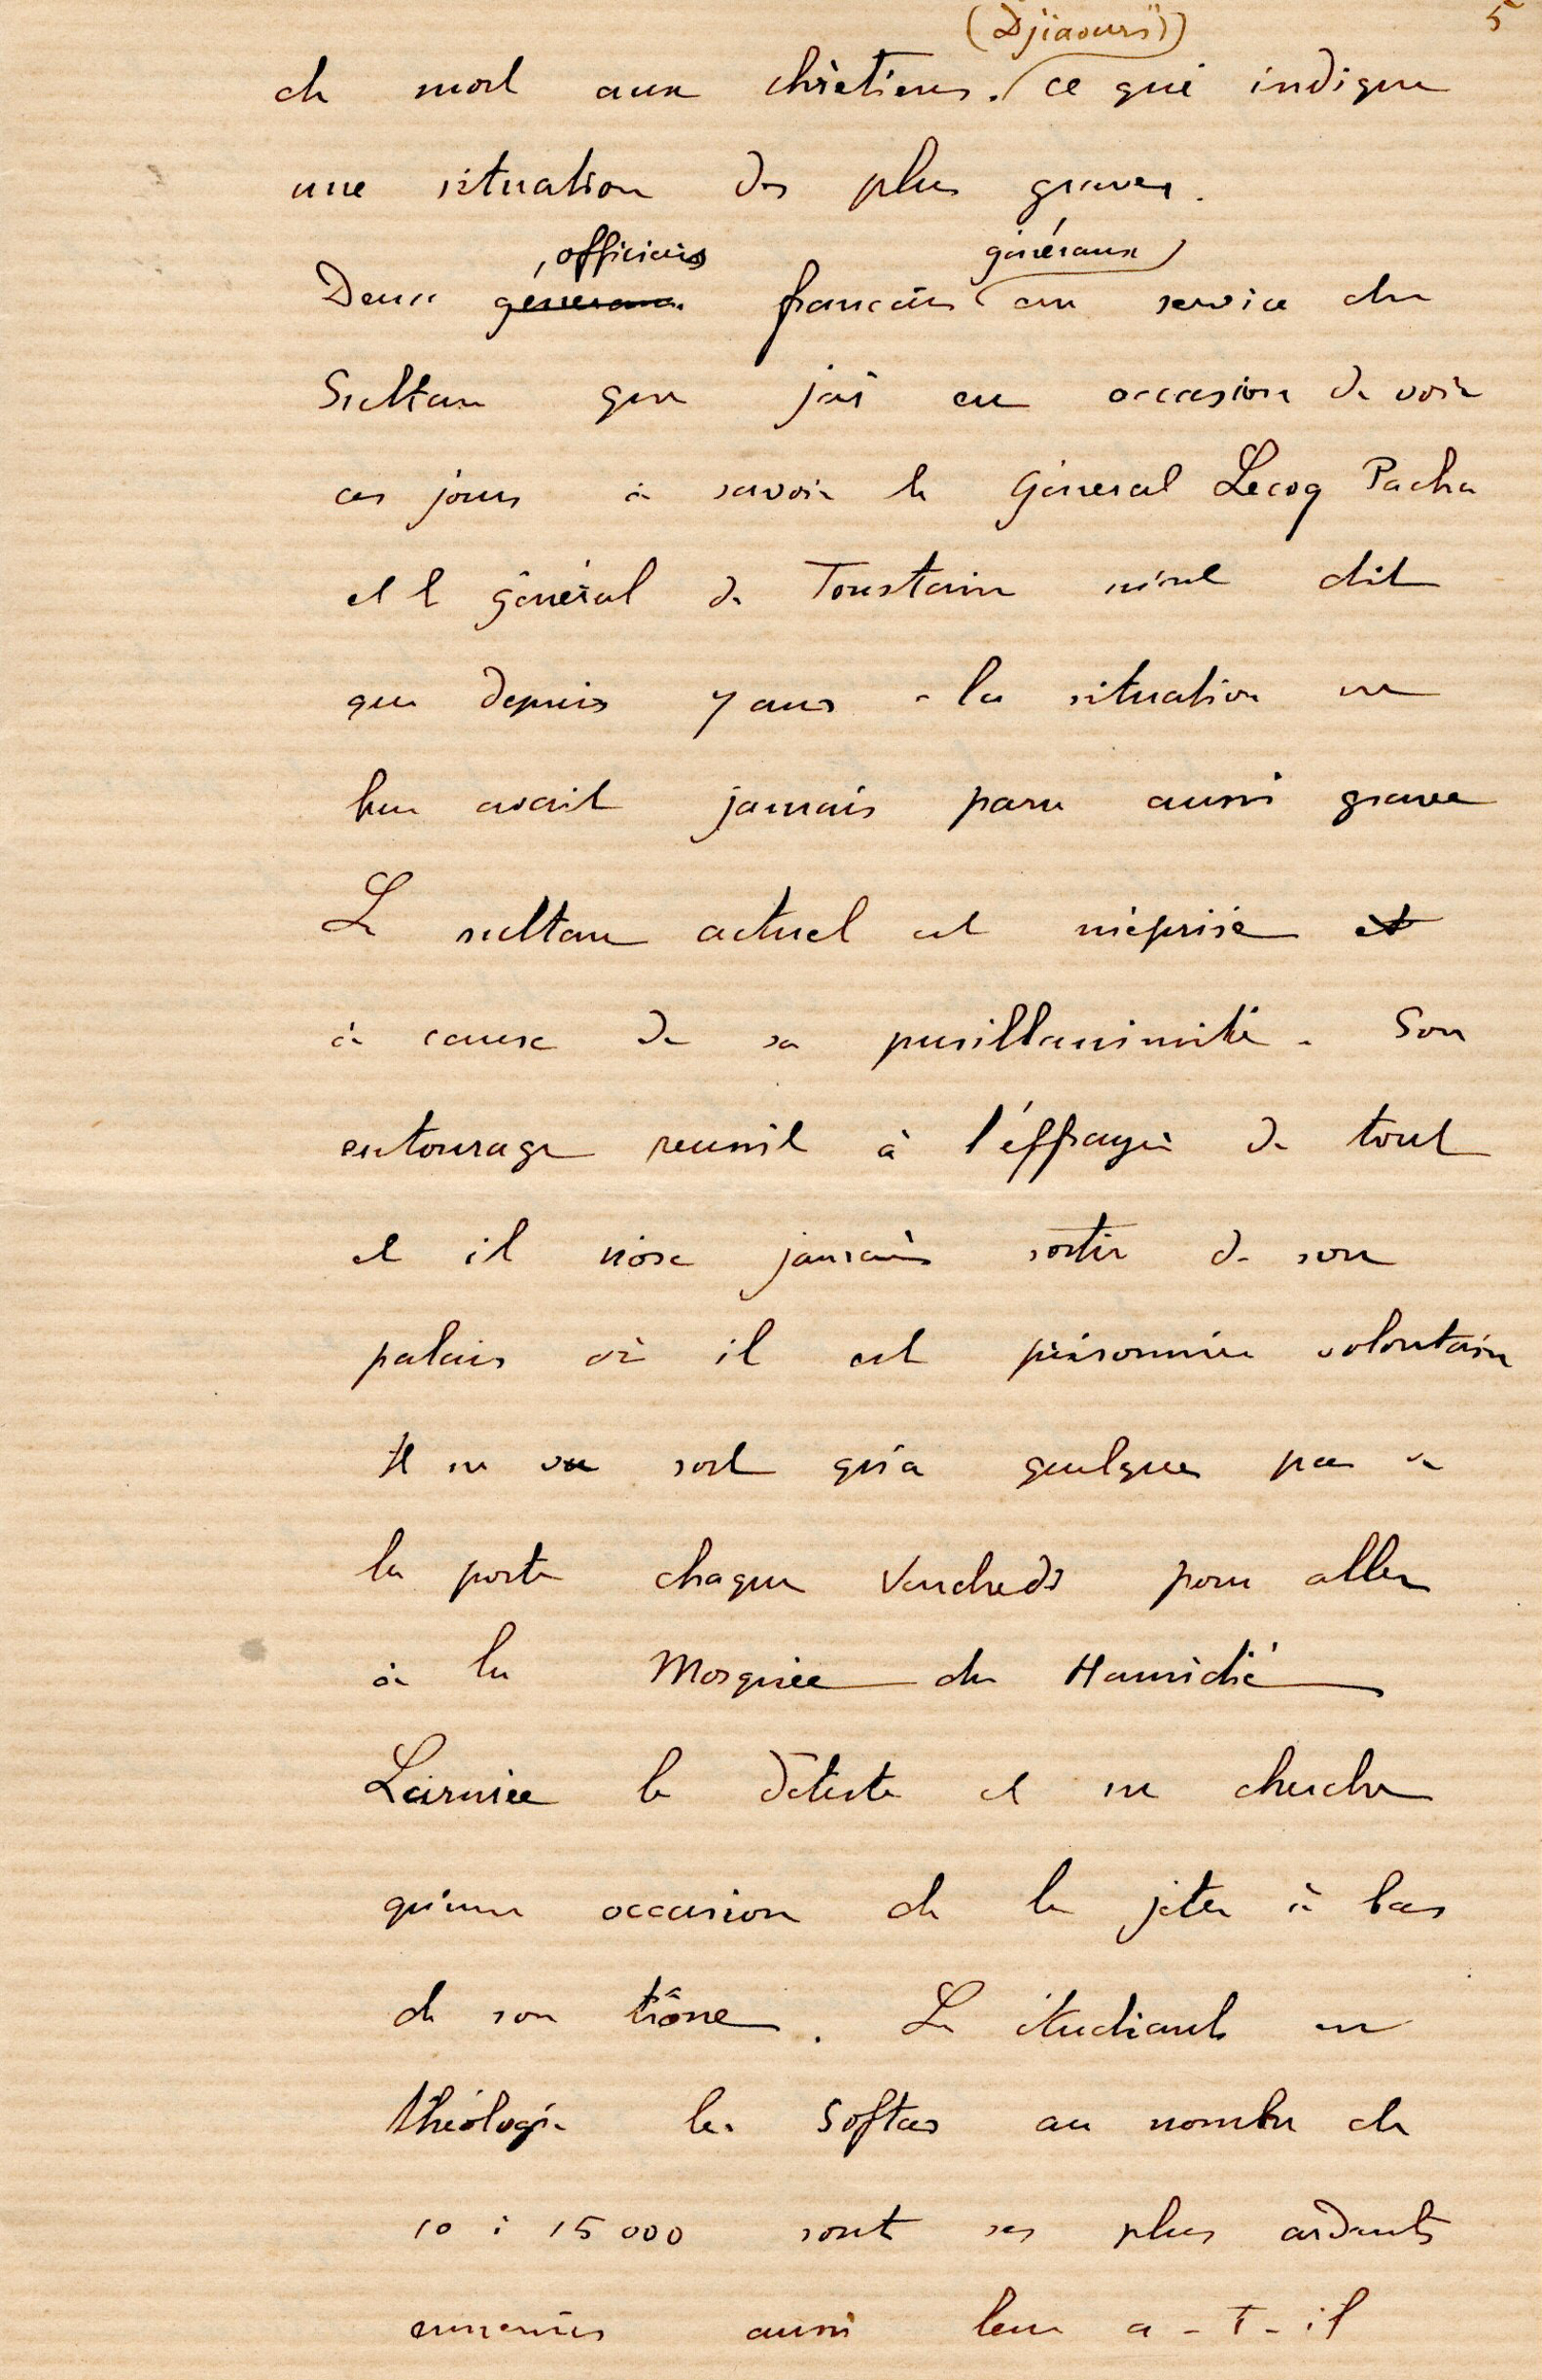 5
(Djiaours)
de mort aux chrétiens. ce qui indique
une situation des plus graves.
, officiers généraux
Deux généraux français au service du
Sultan que j'ai eu occasion de voir
ces jours à savoir le Géneral Lecoq Pacha
et l général de Toustain m'ont dit
que depuis 7 ans - la situation ne
leur avait jamais paru aussi grave
Le sultan actuel est méprisé et
à cause de sa pusillanimité. Son
entourage reussit à l'éffrayer de tout
et il n'ose jamais sortir de son
palais où il est prisonnier volontaire
Il ne sort qu'a quelques pas de
la porte chaque Vendredi pour aller
à la Mosquée du Hamidié
L'armée le déteste et ne cherche
qu'une occasion de le jeter à bas
de son trône. Les étudiants en
théologie les Softas au nombre de
10 à 15000 sont ses plus ardents
ennemis aussi leur a-t-il